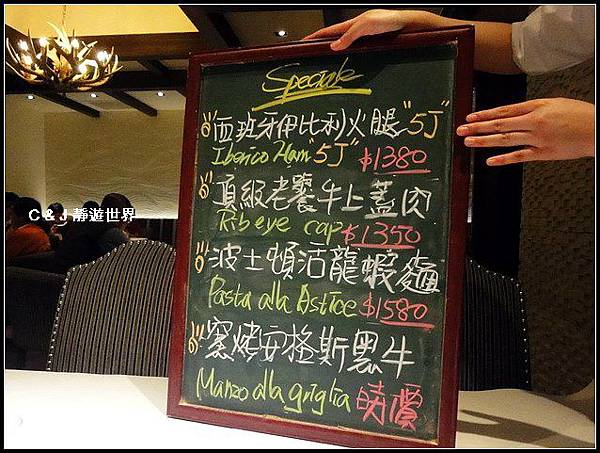 Speciale
西班牙伊比利火腿"5J"
Iberico Ham "5J" $1380
頂級老饕牛上蓋肉
Rib eye cap $1350
波士頓活龍蝦麵
Pasta alla Astice $1580
窯烤安格斯黑牛
Manzo alla griglia 時價
C & J 靜遊世界